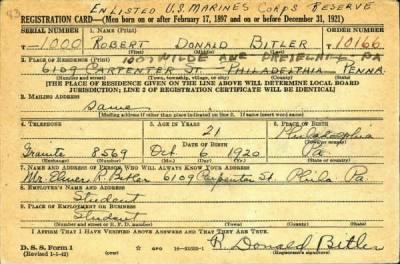 ENLISTED U.S. MARINES CORPS RESERVE
REGISTRATION CARD—(Men born on or after February 17, 1897 and on or before December 31, 1921)
SERIAL NUMBER 1. NAME (Print) ORDER NUMBER
T-1000 ROBERT DONALD BITLER 10166
(First) (Middle) (Last)
1001 MILDE AVE DREXELHILL PA
2. PLACE OF RESIDENCE (Print)
6109 CARPENTER ST. PHILADELPHIA PENNA.
(Number and street) (Town, township, village, or city) (County) (State)
[THE PLACE OF RESIDENCE GIVEN ON THE LINE ABOVE WILL DETERMINE LOCAL BOARD
JURISDICTION; LINE 2 OF REGISTRATION CERTIFICATE WILL BE IDENTICAL]
3. MAILING ADDRESS
Same
[Mailing address if other than place indicated on line 2. If same insert word same]
4. TELEPHONE 5. AGE IN YEARS 6. PLACE OF BIRTH
21 Philadelphia
DATE OF BIRTH (Town or county)
Granite 8569 Oct. 6 1920 Pa
(Exchange) (Number) (Mo.) (Day) (Yr.) (State or country)
7. NAME AND ADDRESS OF PERSON WHO WILL ALWAYS KNOW YOUR ADDRESS
Mr. Elmer R. Bitler 6109 Carpenter St. Phila. Pa.
8. EMPLOYER'S NAME AND ADDRESS
Student
9. PLACE OF EMPLOYMENT OR BUSINESS
Student
(Number and street or R. F. D. number) (Town) (County) (State)
I AFFIRM THAT I HAVE VERIFIED ABOVE ANSWERS AND THAT THEY ARE TRUE.
D. S. S. Form 1
(Revised 1-1-42) (over) GPO 16-21631-1 R. Donald Bitler
(Registrant's signature)